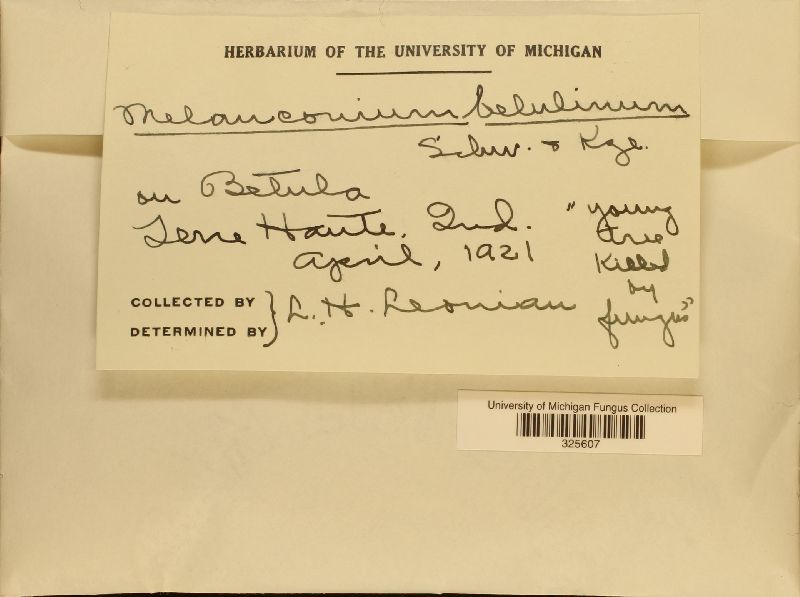 HERBARIUM OF THE UNIVERSITY OF MICHIGAN
Melanconium betulinum
Schw. & Kze.
on Betula
Terre Haute, Ind.
April, 1921
"young
tree
killed
by
fungus"
COLLECTED BY
DETERMINED BY
L. H. Leonian
University of Michigan Fungus Collection
325607